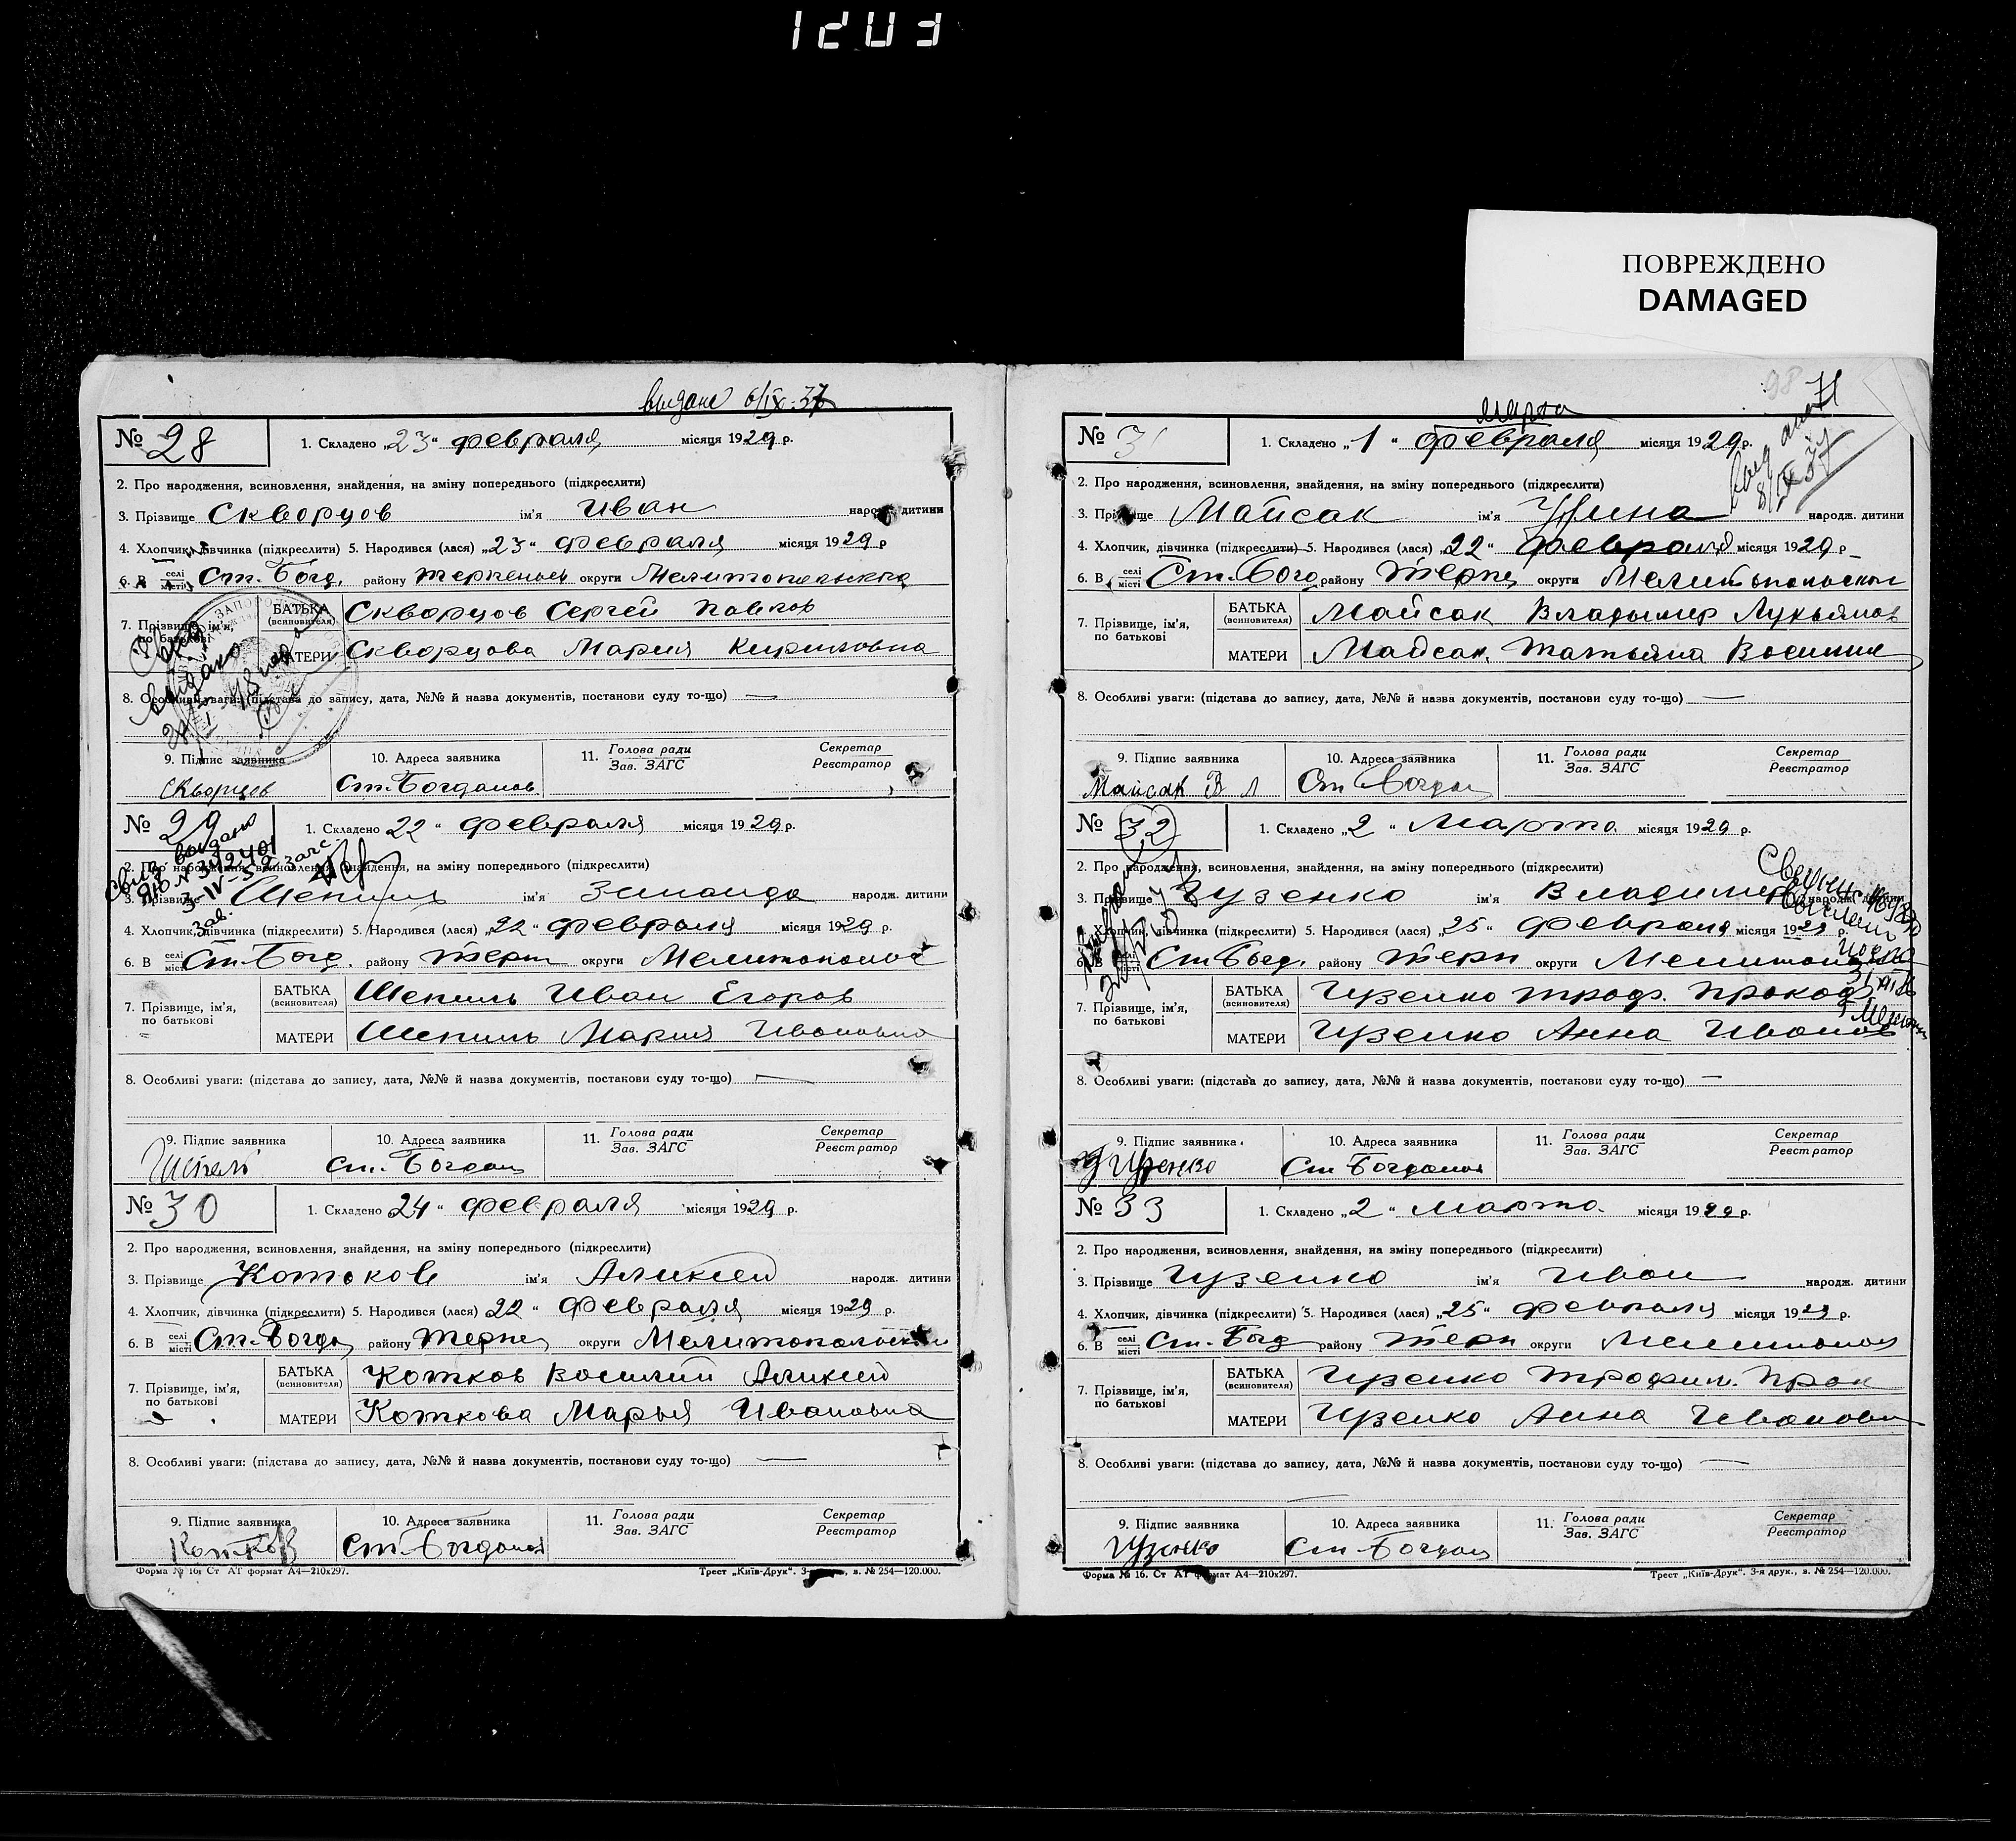 1203
ПОВРЕЖДЕНО
DAMAGED
выдано 6/IX-37
№ 28
1. Складено „23“ февраля місяця 1929 р.
2. Про народження, всиновлення, знайдення, на зміну попереднього (підкреслити)
3. Прізвище Скворцов ім'я Иван народж. дитини
4. Хлопчик, дівчинка (підкреслити) 5. Народився (лася) „23“ февраля місяця 1929 р
6. В селі місті Ст. Богд. району округи
7. Прізвище, ім'я, по батькові
БАТЬКА (всиновителя) Скворцов Сергей Павлов
МАТЕРИ Скворцова Мария Кириловна
8. Особливі уваги: (підстава до запису, дата, №№ й назва документів, постанови суду то-що) —
9. Підпис заявника
Скворцов
10. Адреса заявника
Ст. Богданов
11. Голова ради
Зав. ЗАГС
Секретар
Реєстратор
№ 29
1. Складено 22 “ февраля місяця 1929 р.
2. Про народження, всиновлення, знайдення, на зміну попереднього (підкреслити)
3. Прізвище Шепиль ім'я народж. дитини
4. Хлопчик, дівчинка (підкреслити) 5. Народився (лася) „22“ февраля місяця 1929 р.
6. В селі місті Ст. Богд. району Терп округи
7. Прізвище, ім'я, по батькові
БАТЬКА (всиновителя) Шепиль Иван Егоров
МАТЕРИ Шепиль Мария Ивановна
8. Особливі уваги: (підстава до запису, дата, №№ й назва документів, постакови суду то-що) —
9. Підпис заявника
10. Адреса заявника
Ст. Богдан
11. Голова ради
Зав. ЗАГС
Секретар
Реєстратор
№ 30
1. Складено 24 “ февраля місяця 1929 р.
2. Про народження, всиновлення, знайдення, на зміну попереднього (підкреслити)
3. Прізвище Котков ім'я Аликсей народж. дитини
4. Хлопчик, дівчинка (підкреслити) 5. Народився (лася) 22 “ февраля місяця 1929 р.
6. В селі місті Ст. Богд району Терпе округи Мелитопольской
7. Прізвище, ім'я, по батькові
БАТЬКА (всиновителя) Котков Василий Аликсей
МАТЕРИ Коткова Марья Ивановна
8. Особливі уваги: (підстава до запису, дата, №№ й назва документів, постанови суду то-що) —
9. Підпис заявника
Котков
10. Адреса заявника
Ст. Богданов
11. Голова ради
Зав. ЗАГС
Секретар
Реєстратор
Форма № 16. Ст АТ формат А4—210х297.
Трест „Київ-Друк“. 3-я друк., з. № 254—120.000.
71
марта
№ 31
1. Складено „1“ февраля місяця 1929 р.
2. Про народження, всиновлення, знайдення, на зміну попереднього (підкреслити)
3. Прізвище Майсак ім'я Нина народж. дитини
4. Хлопчик, дівчинка (підкреслити) 5. Народився (лася) „22“ февраля місяця 1929 р
6. В селі місті Ст. Богд району Терпе округи
7. Прізвище, ім'я, по батькові
БАТЬКА (всиновителя) Майсак Владимир Лукьянов
МАТЕРИ Майсак Татьяна
8. Особливі уваги: (підстава до запису, дата, №№ й назва документів, постанови суду то-що) —
9. Підпис заявника
Майсак В Л
10. Адреса заявника
Ст Богдан
11. Голова ради
Зав. ЗАГС
Секретар
Реєстратор
№ 32
1. Складено „2“ Марта місяця 1929 р.
2. Про народження, всиновлення, знайдення, на зміну попереднього (підкреслити)
3. Прізвище Гузенко ім'я Владимир народж. дитини
4. Хлопчик, дівчинка (підкреслити) 5. Народився (лася) „25“ февраля місяця 1929 р.
6. В селі місті Ст. Богд. району Терп округи
7. Прізвище, ім'я, по батькові
БАТЬКА (всиновителя) Гузенко Проф. Прокоф
МАТЕРИ Гузенко Анна Иванов
8. Особливі уваги: (підстава до запису, дата, №№ й назва документів, постакови суду то-що) —
9. Підпис заявника
Гузенко
10. Адреса заявника
Ст Богданов
11. Голова ради
Зав. ЗАГС
Секретар
Реєстратор
№ 33
1. Складено „2“ марта. місяця 1929 р.
2. Про народження, всиновлення, знайдення, на зміну попереднього (підкреслити)
3. Прізвище Гузенко ім'я Иван народж. дитини
4. Хлопчик, дівчинка (підкреслити) 5. Народився (лася) „25“ февраля місяця 1929 р.
6. В селі місті Ст. Богд району Терп округи
7. Прізвище, ім'я, по батькові
БАТЬКА (всиновителя) Гузенко Трофим. Прок
МАТЕРИ Гузенко Анна Ивановн
8. Особливі уваги: (підстава до запису, дата, №№ й назва документів, постанови суду то-що) —
9. Підпис заявника
Гузенко
10. Адреса заявника
Ст. Богдан
11. Голова ради
Зав. ЗАГС
Секретар
Реєстратор
Форма № 16. Ст АТ формат А4—210х297.
Трест „Київ-Друк“. 3-я друк., з. № 254—120.000.